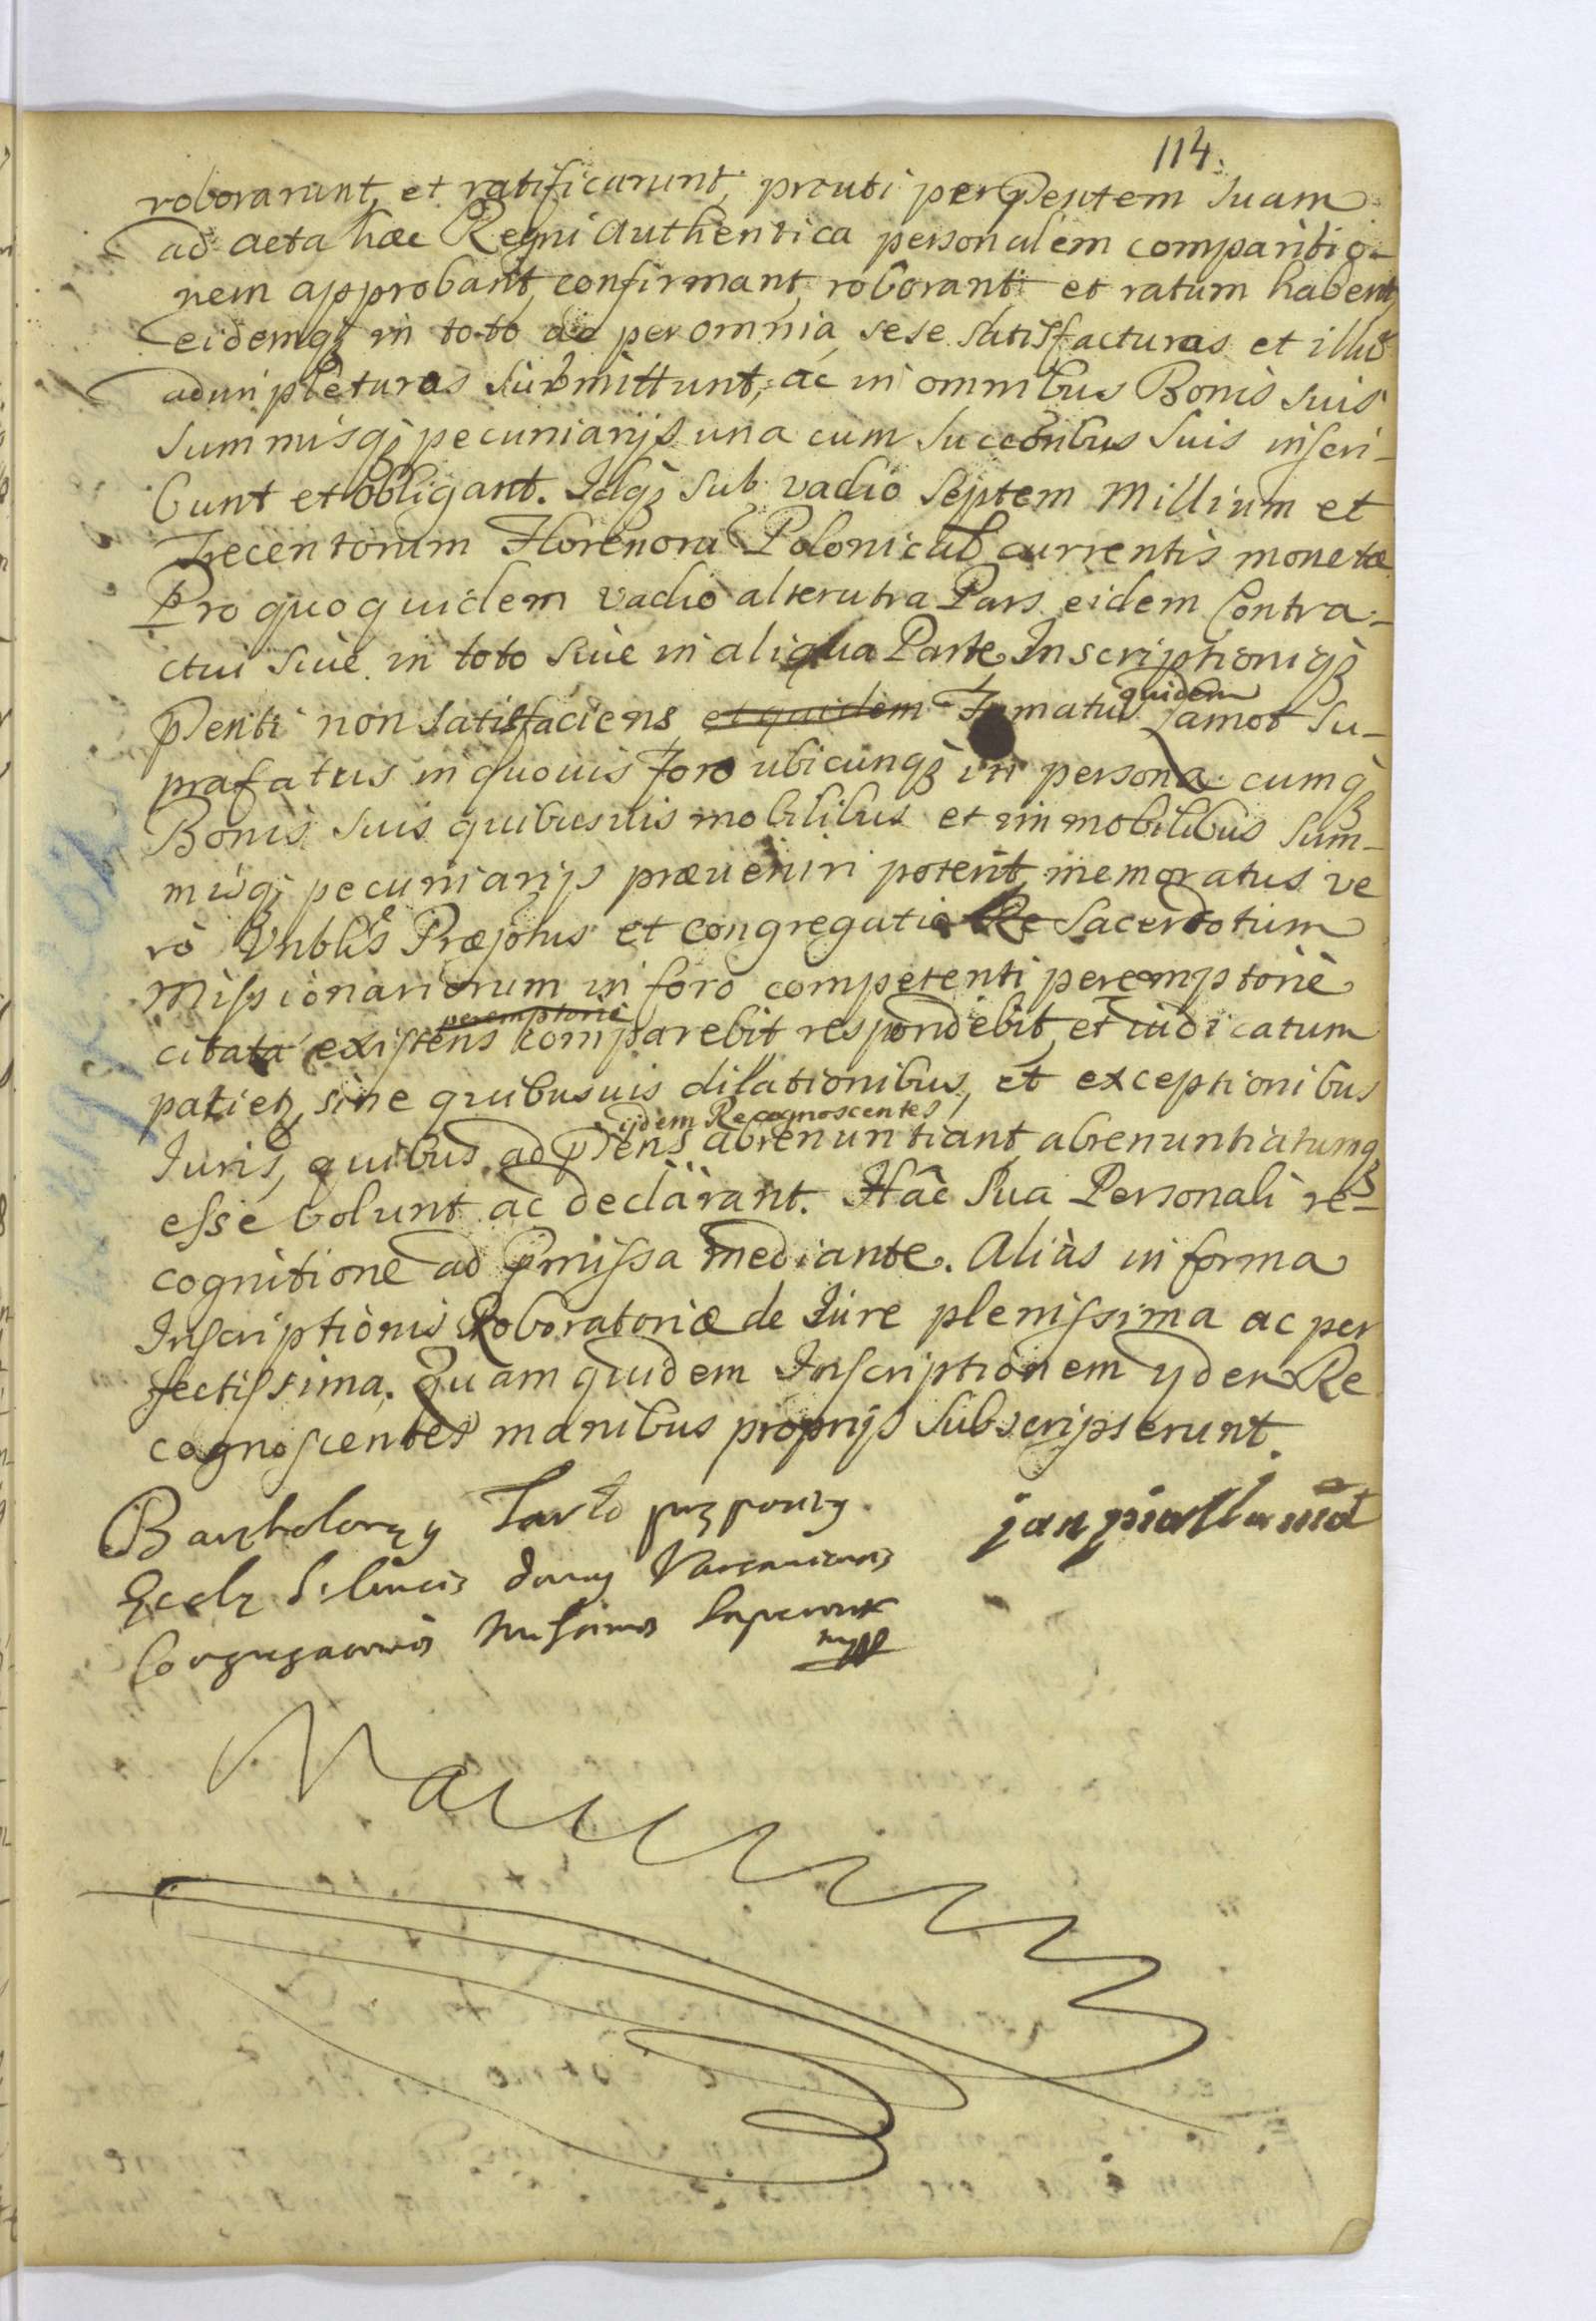 114.
roborarunt, et ratificarunt, prouti per psentem suam
ad acta hæc Regni Authentica personalem comparitio-
nem approbant, confirmant, roborant et ratum habent
eidemq3 in toto ac per omnia, sese satisfacturas et illud
adimpleturas submittunt, ac in omnibus Bonis suis
summisq3 pecuniarijs una cum Succoribus Suis inscri-
bunt et obligant. Idq3 sub vadio Septem Millium et
Trecentorum Florenoru Polonical currentis monetæ
Pro quo quidem vadio alterutra Pars eidem Contra-
ctui siue in toto siue in aliqua Parte Inscriptioniq3
psenti non satisfaciens et quidem Famatus quidem Lamot su-
prafatus in quouis Foro ubicunq3 in persona cumq3
Bonis suis quibusuis mobilibus et immobilibus Sum-
misq3 pecuniarijs præueniri poterit, memoratus ve
rò Vnblis Præptus et Congregatio Sacerdotum
Missionariorum in foro competenti peremptoriè
citata existens peremptoriè comparebit respondebit, et iudicatum
patietz, sine quibusuis dilationibus, et exceptionibus
Iuris, quibus ad psens ijdem Recognoscentes abrenuntiant, abrenuntiatumq3
esse volunt ac declarant. Hâc sua Personali re-
cognitione ad pmissa mediante. Aliàs in forma
Inscriptionis Roboratoriæ de Iure plenissima ac per
fectissima. Quam quidem Inscriptionem ydem Re
cognoscentes manibus proprijs subscripserunt.
Tarło